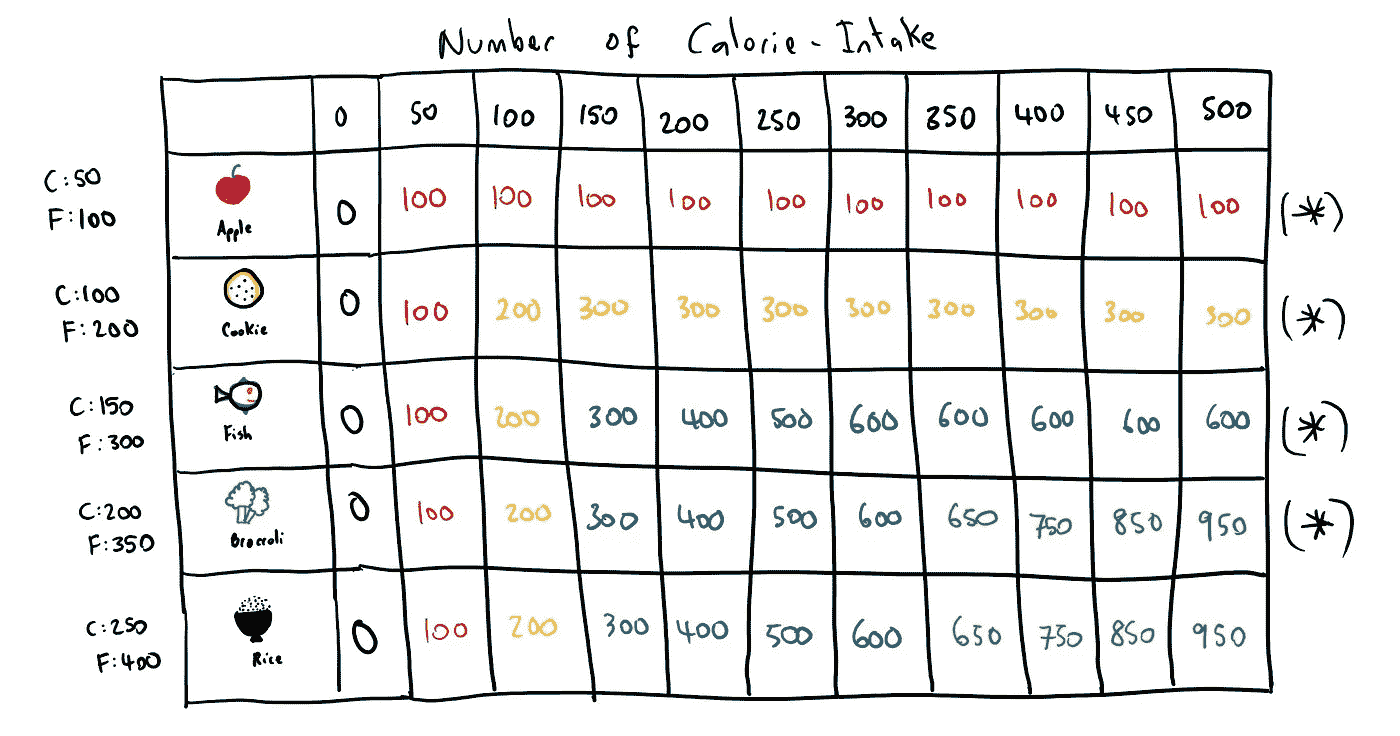 Number of Calorie-Intake
0 50 100 150 200 250 300 350 400 450 500
C:50
F:100
Apple
0 100 100 100 100 100 100 100 100 100 100 (*)
C:100
F:200
Cookie
0 100 200 300 300 300 300 300 300 300 300 (*)
C:150
F:300
Fish
0 100 200 300 400 500 600 600 600 600 600 (*)
C:200
F:350
Broccoli
0 100 200 300 400 500 600 650 750 850 950 (*)
C:250
F:400
Rice
0 100 200 300 400 500 600 650 750 850 950